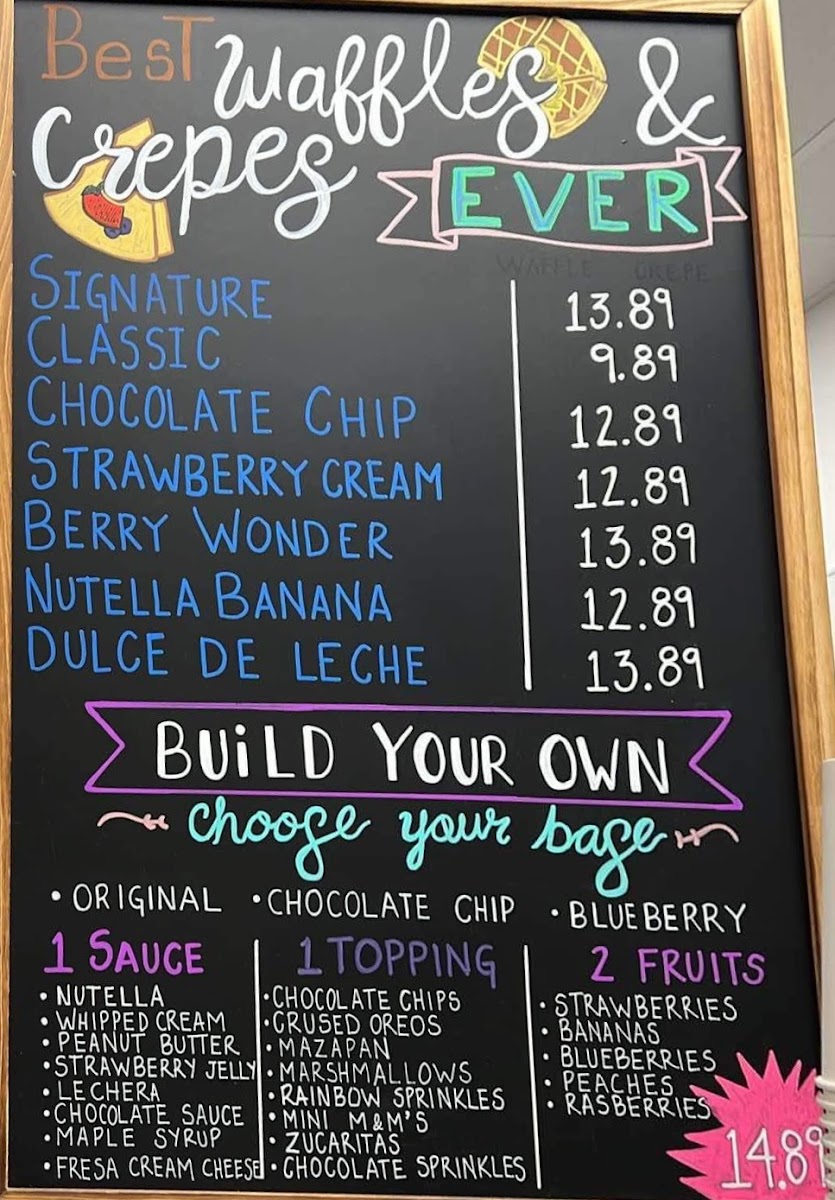 BEST Waffles &
Crepes EVER
WAFFLE CREPE
SIGNATURE 13.89
CLASSIC 9.89
CHOCOLATE CHIP 12.89
STRAWBERRY CREAM 12.89
BERRY WONDER 13.89
NUTELLA BANANA 12.89
DULCE DE LECHE 13.89
BUiLD YOUR OWN
choose your base
• ORIGINAL • CHOCOLATE CHIP • BLUEBERRY
1 SAUCE
• NUTELLA
• WHIPPED CREAM
• PEANUT BUTTER
• STRAWBERRY JELLY
• LECHERA
• CHOCOLATE SAUCE
• MAPLE SYRUP
• FRESA CREAM CHEESE
1 TOPPING
• CHOCOLATE CHIPS
• CRUSED OREOS
• MAZAPAN
• MARSHMALLOWS
• RAINBOW SPRINKLES
• MINI M&M'S
• ZUCARITAS
• CHOCOLATE SPRINKLES
2 FRUITS
• STRAWBERRIES
• BANANAS
• BLUEBERRIES
• PEACHES
• RASBERRIES
14.89